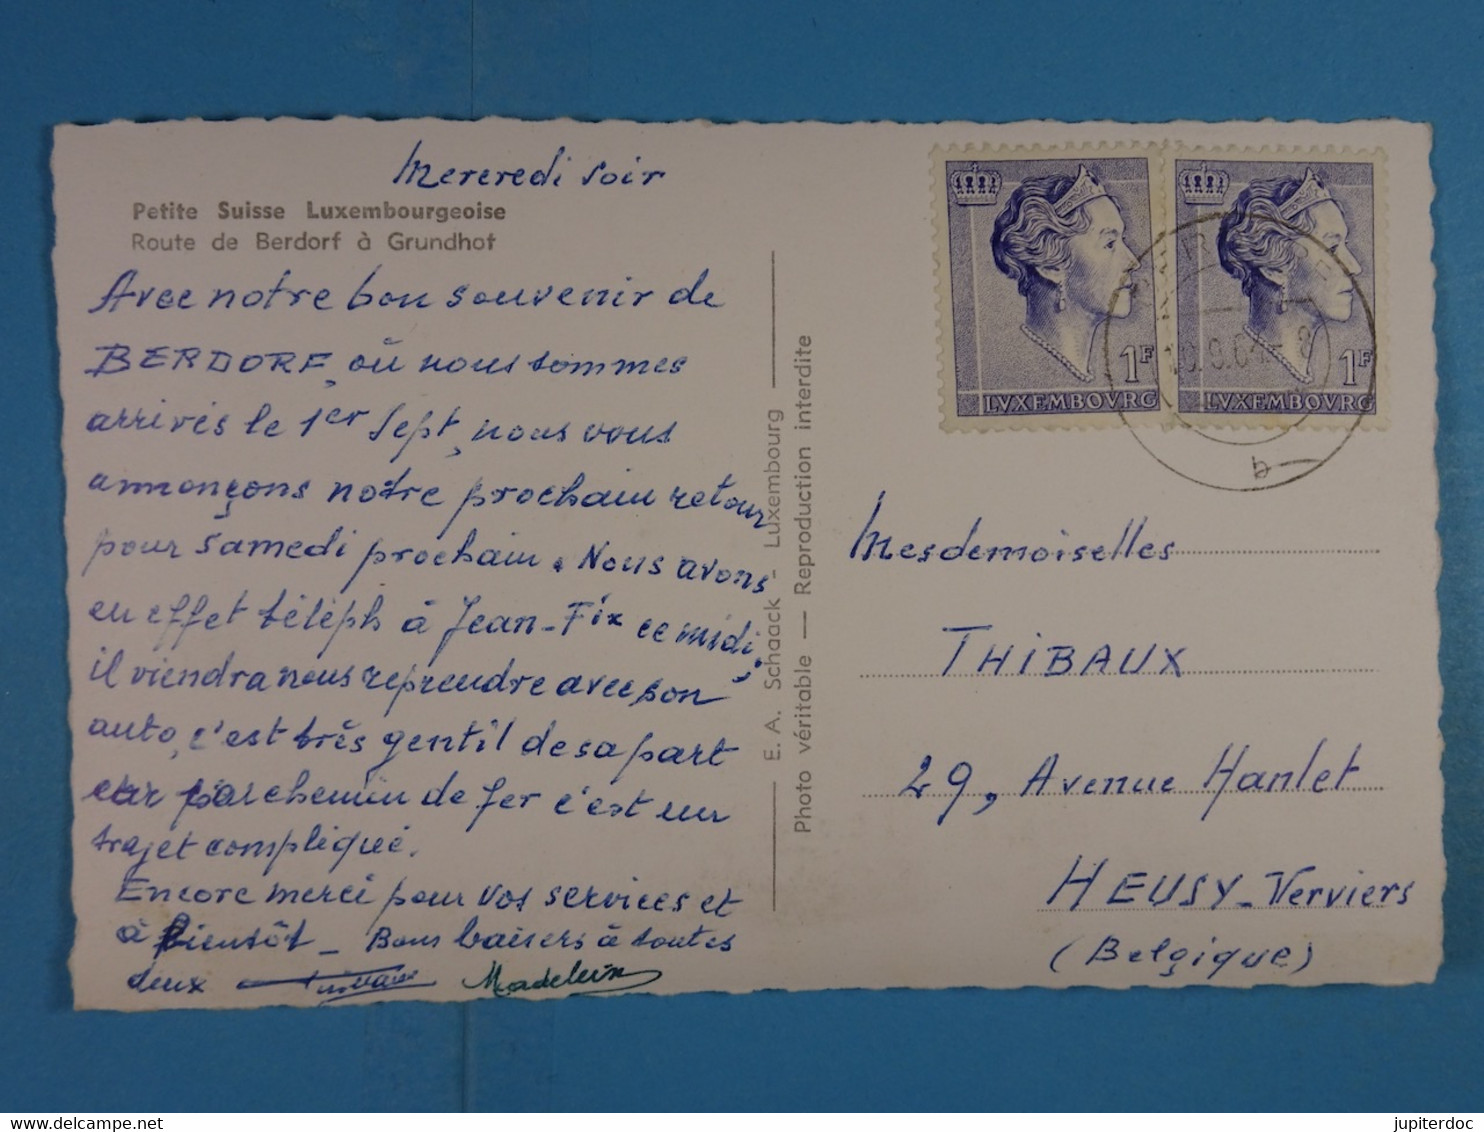 Mercredi soir
Petite Suisse Luxembourgeoise
Route de Berdorf à Grundhof
Avec notre bon souvenir de
BERDORF, où nous sommes
arrivés le 1er Sept, nous vous
annonçons notre prochain retour
pour samedi prochain. Nous avons
en effet téléph à Jean-Fix ce midi,
il viendra nous reprendre avec son
auto, c'est très gentil de sa part
car par chemin de fer c'est un
trajet compliqué.
Encore merci pour vos services et
à Bientôt - Bons baisers à toutes
deux Madeleine
E. A. Schaack - Luxembourg
Photo véritable — Reproduction interdite
1F
LVXEMBOVRG
1F
LVXEMBOVRG
b
Mesdemoiselles
THIBAUX
29, Avenue Hanlet
HEUSY-Verviers
(Belgique)
delcampe.net
jupiterdoc